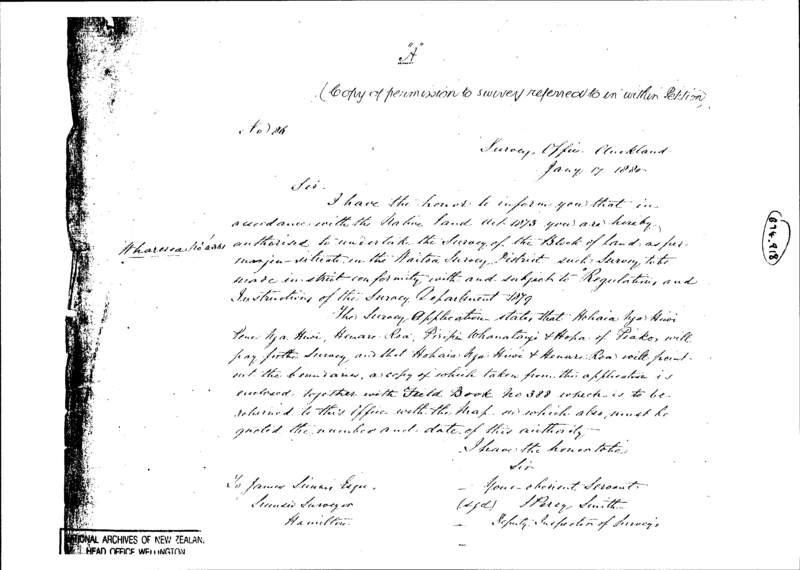 "A"
(Copy of permission to survey referred to in within Petition)
No 86
Survey Office Auckland
Jany 17. 1880
Sir.
I have the honor to inform you that in
accordance with the Native Land Act 1873 you are hereby
authorised to undertake the Survey of the Block of land, as per
margin situate in the Survey District such Survey to be
made in strict conformity with and subject to "Regulations and
Instructions of the Survey Department 1879
The Survey Application states that Hohaia Nga Hiwi
Pene Nga Hiwi, Henare Roa, Piripi Whanatangi & Hopa of Piako, will
pay for the Survey and that Hohaia Nga Hiwi & Henare Roa will point
out the boundaries, a copy of which taken from the application is
enclosed together with Field Book No 388 which is to be
returned to this Office with the Map on which also, must be
quoted the number and date of this authority
I have the honor to be
Sir
Your obedient Servant
(sgd) S Percy Smith
Deputy Inspector of Surveys
To James Esqre.
Surveyor
Hamilton
674.918
NATIONAL ARCHIVES OF NEW ZEALAND
HEAD OFFICE WELLINGTON